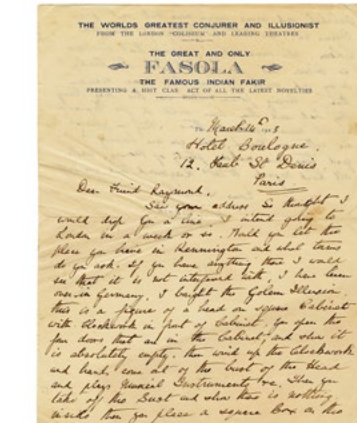 THE WORLDS GREATEST CONJURER AND ILLUSIONIST
FROM THE LONDON "COLISEUM" AND LEADING THEATRES
THE GREAT AND ONLY
FASOLA
THE FAMOUS INDIAN FAKIR
PRESENTING A HIGH CLASS ACT OF ALL THE LATEST NOVELTIES
March
Hotel Boulogne.
12. St Denis
Paris
Dear Friend Raymond.
Saw your address So thought I
would drop you a line I intend going to
London in a week or so. Would you let the
place you have in Kennington and what terms
do you ask. If you have anything there I would
see that it is not interfered with. I have been
over in Germany. I bought the Golem Illusion.
this is a figure of a head on square Cabinet
with Clockwork in front of Cabinet. You open the
doors that are in the Cabinet, and show it
is absolutely empty. then wind up the Clockwork
and hands come out of the bust of the Head
and plays Musical Instruments &c. Then you
take off the Bust and show there is nothing
inside then you place a square box on the